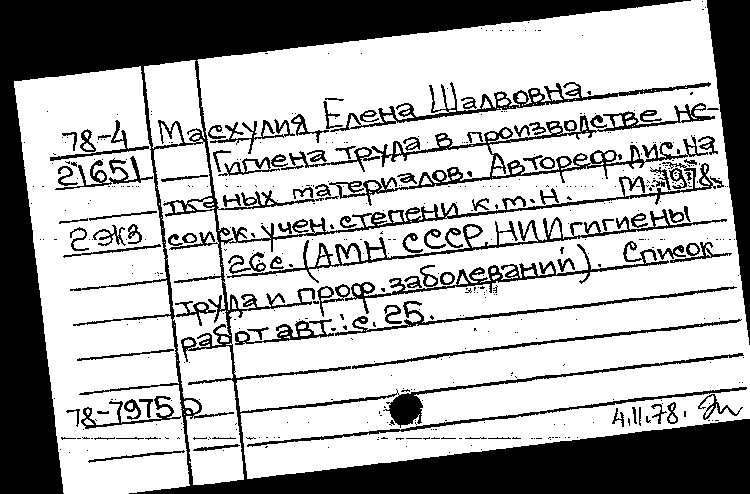 78-4 Масхулия, Елена Шалвовна.
21651 Гигиена труда в производстве не-
тканых материалов. Автореф. дис. на
2 экз соиск. учен. степени к.м.н. М, 1978.
26с. (АМН СССР. НИИ гигиены
труда и проф. заболеваний). Список
работ авт.: с. 25.
78-79755
4.11.78.